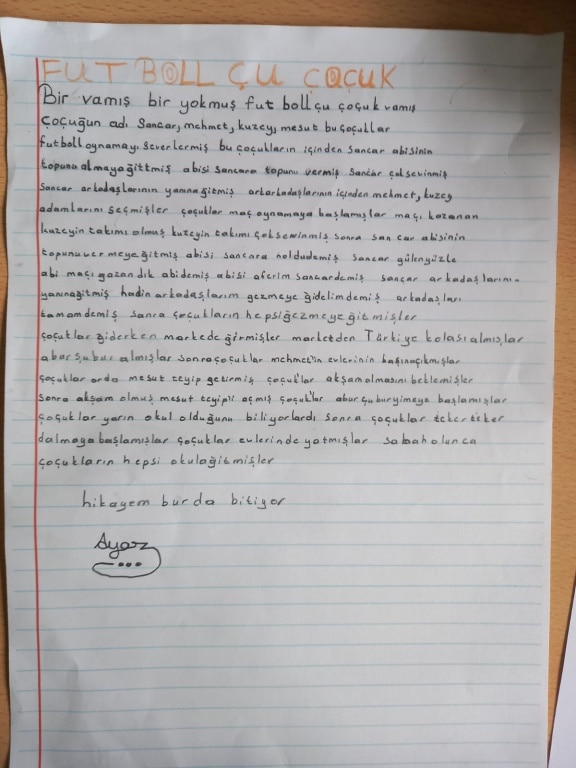 FUTBOLL ÇU ÇOÇUK
Bir vamış bir yokmuş fut boll çu çoçuk vamış
Çoçuğun adı Sancar, mehmet, kuzey, mesut bu çoçuklar
futboll oynamayı severlermiş bu çoçukların içinden sancar abisinin
topunu almaya gittmiş abisi sancara topunu vermiş sancar çok sevinmiş
sancar arkadaşlarının yanına gitmiş arkarkadaşlarının içinden mehmet, kuzey
adamlarını seçmişler çoçuklar maç oynamaya başlamışlar maçı kazanan
kuzeyin takımı olmuş kuzeyin takımı çok sevinmiş sonra san car abisinin
topunu vermeye gitmiş abisi sancara noldu demiş sancar güler yüzle
abi maçı gazandık abi demiş abisi aferim sancar demiş sancar arkadaşlarının
yanına gitmiş hadin arkadaşlarım gezmeye gidelim demiş arkadaşları
tamam demiş sanra çoçukların hepsi gezmeye gitmişler
çoçuklar giderken markede girmişler marketden Türkiye kolası almışlar
abur subur almışlar sonra çoçuklar mehmet'in evlerinin başına çıkmışlar
çoçuklar orda mesut teyip getirmiş çoçuk'lar akşam olmasını beklemişler
sonra akşam olmuş mesut teyip'i açmış çoçuk'lar abur çubur yimeye başlamışlar
çoçuklar yarın okul olduğunu biliyorlardı sonra çoçuklar teker teker
dalmaya başlamışlar çoçuklar evlerinde yatmışlar sabah olunca
çoçukların hepsi okula gitmişler
hikayem burda bitiyor
Ayaz